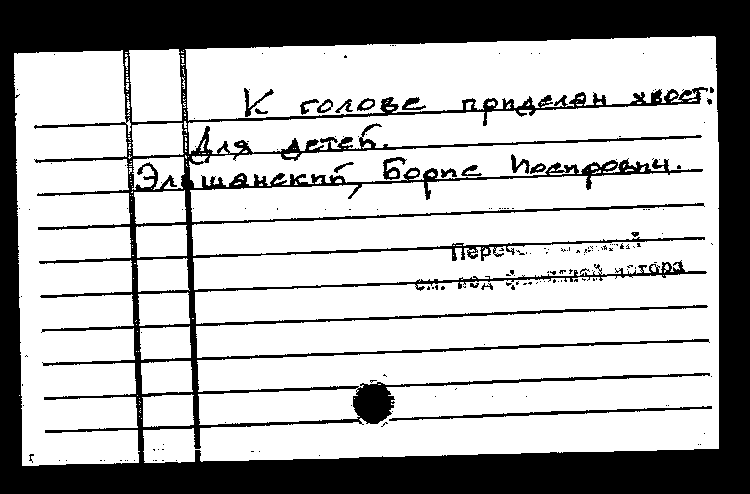 К голове приделан хвост:
Для детей.
Эльшанский, Борис Иосифович.
см. под фамилией автора